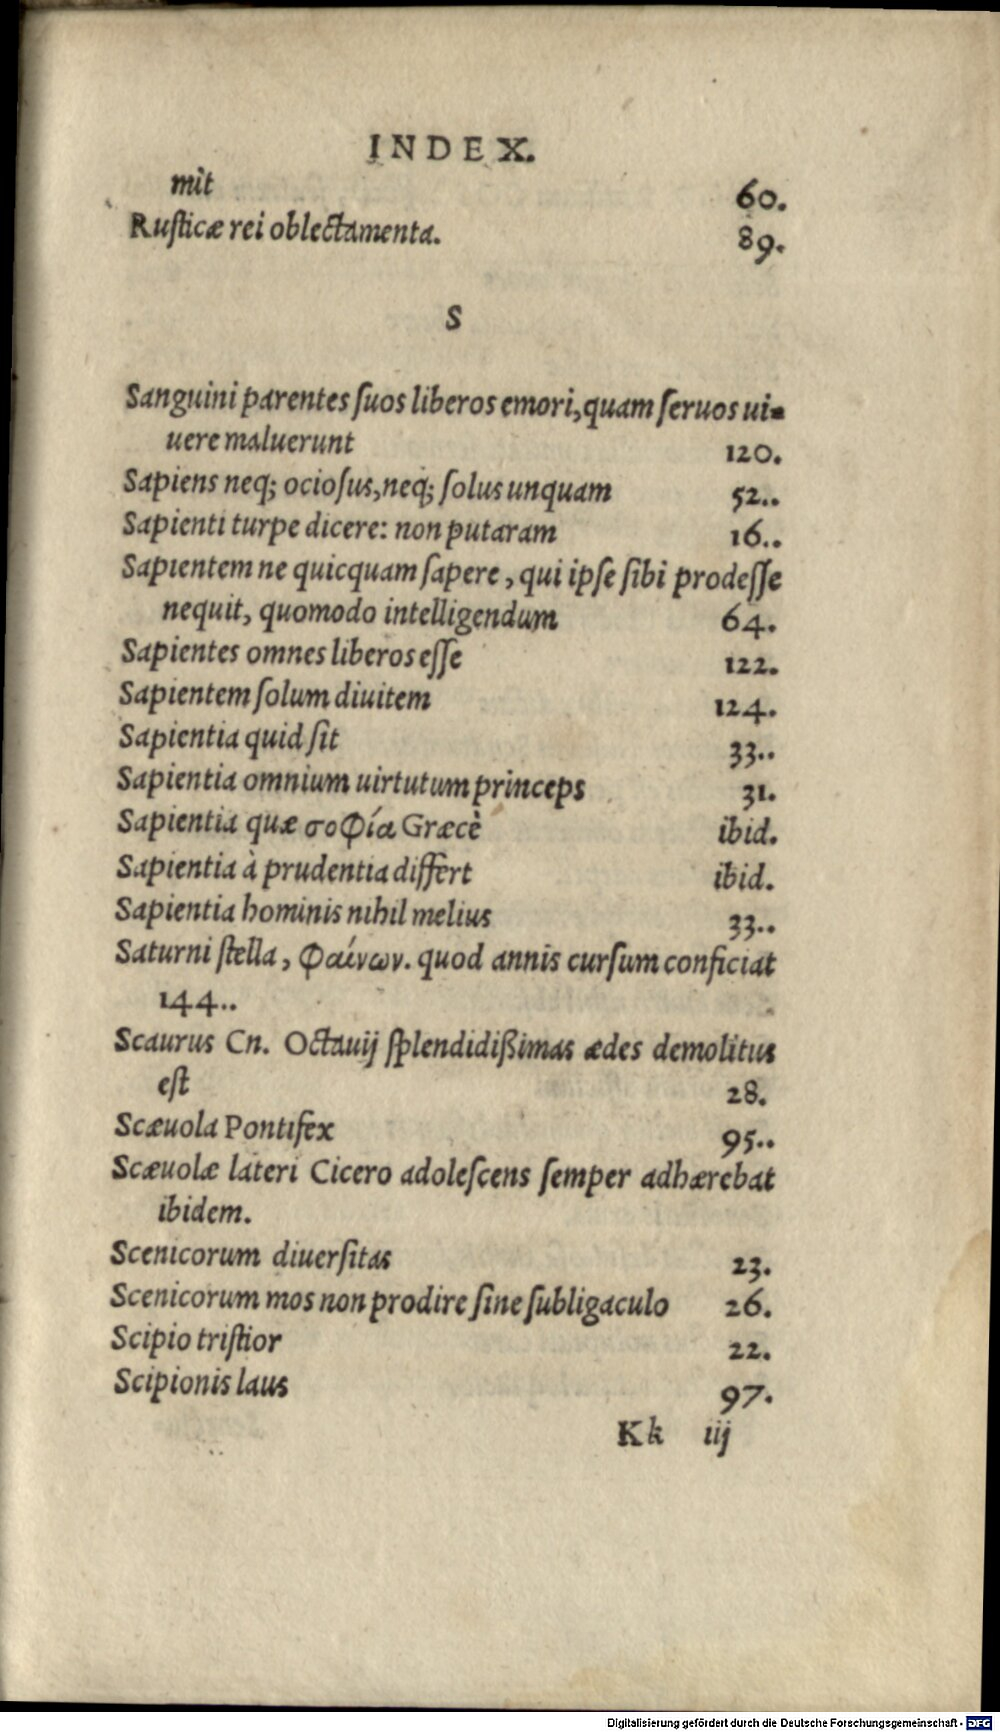 INDEX.
mit 60.
Rusticæ rei oblectamenta. 89.
S
Sanguini parentes suos liberos emori, quam seruos ui-
uere maluerunt 120.
Sapiens neq; ociosus, neq; solus unquam 52..
Sapienti turpe dicere: non putaram 16..
Sapientem ne quicquam sapere, qui ipse sibi prodesse
nequit, quomodo intelligendum 64.
Sapientes omnes liberos esse 122.
Sapientem solum diuitem 124.
Sapientia quid sit 33..
Sapientia omnium uirtutum princeps 31.
Sapientia quæ σοφία Græcè ibid.
Sapientia à prudentia differt ibid.
Sapientia hominis nihil melius 33..
Saturni stella, φαίνων. quod annis cursum conficiat
144..
Scaurus Cn. Octauij splendidißimas ædes demolitus
est 28.
Scæuola Pontifex 95..
Scæuolæ lateri Cicero adolescens semper adhærebat
ibidem.
Scenicorum diuersitas 23.
Scenicorum mos non prodire sine subligaculo 26.
Scipio tristior 22.
Scipionis laus 97.
Kk iij
Digitalisierung gefördert durch die Deutsche Forschungsgemeinschaft - DFG